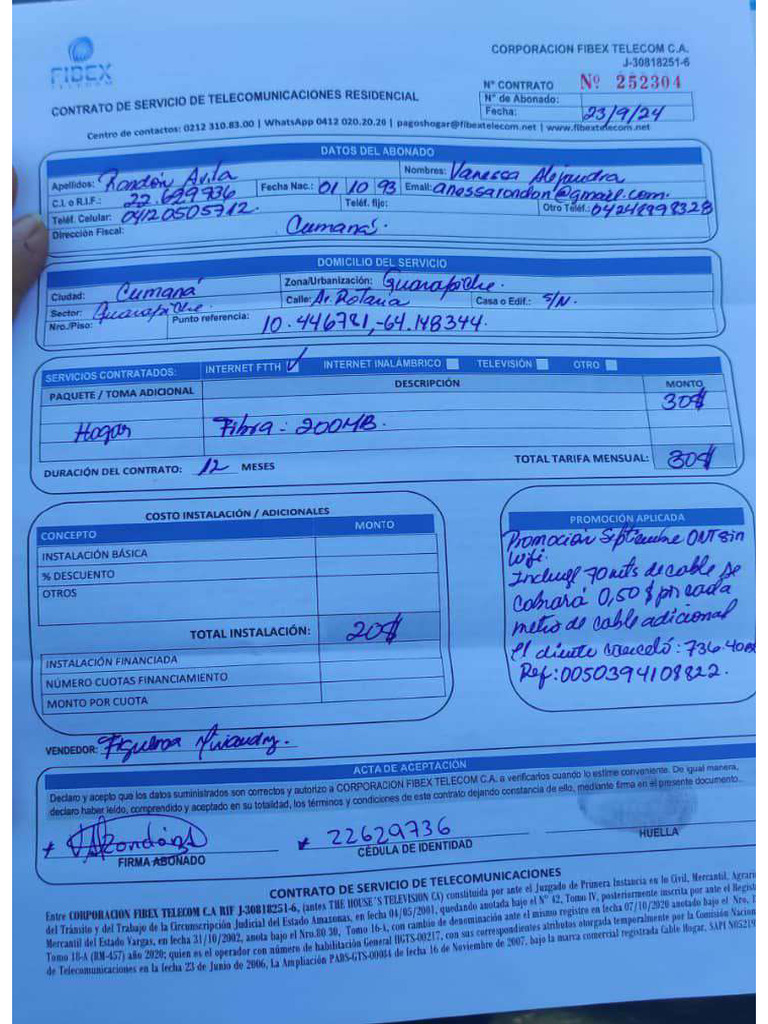 FIBEX
TELECOM
CORPORACION FIBEX TELECOM C.A.
J-30818251-6
CONTRATO DE SERVICIO DE TELECOMUNICACIONES RESIDENCIAL
N° CONTRATO Nº 252304
N° de Abonado:
Fecha: 23/9/24
Centro de contactos: 0212 310.83.00 | WhatsApp 0412 020.20.20 | pagoshogar@fibextelecom.net | www.fibextelecom.net
DATOS DEL ABONADO
Apellidos: Rondón Avila Nombres: Vanessa Alejandra
C.I. o R.I.F.: 22.629736 Fecha Nac.: 01 10 93 Email: anessarondon@gmail.com.
Teléf. Celular: 04120505712. Teléf. fijo: Otro Teléf.: 04248998328
Dirección Fiscal: Cumaná.
DOMICILIO DEL SERVICIO
Ciudad: Cumaná Zona/Urbanización: Guarapiche.
Sector: Guarapiche. Calle: Av. Rotaria Casa o Edif.: S/N.
Nro./Piso: Punto referencia: 10.446781,-64.148344.
SERVICIOS CONTRATADOS: INTERNET FTTH ✓ INTERNET INALÁMBRICO TELEVISIÓN OTRO
PAQUETE / TOMA ADICIONAL DESCRIPCIÓN MONTO
30$
Hogar Fibra - 200MB.
DURACIÓN DEL CONTRATO: 12 MESES TOTAL TARIFA MENSUAL: 30$
COSTO INSTALACIÓN / ADICIONALES
CONCEPTO MONTO
INSTALACIÓN BÁSICA
% DESCUENTO
OTROS
TOTAL INSTALACIÓN: 20$
INSTALACIÓN FINANCIADA
NÚMERO CUOTAS FINANCIAMIENTO
MONTO POR CUOTA
PROMOCIÓN APLICADA
Promoción Septiembre ONT sin
wifi.
Incluye 70 mts de cable se
cobrará 0,50 $ por cada
metro de cable adicional
El cliente canceló: 736.40
Ref: 0050394108822.
VENDEDOR: Figueroa
ACTA DE ACEPTACIÓN
Declaro y acepto que los datos suministrados son correctos y autorizo a CORPORACION FIBEX TELECOM C.A. a verificarlos cuando lo estime conveniente. De igual manera,
declaro haber leído, comprendido y aceptado en su totalidad, los términos y condiciones de este contrato dejando constancia de ello, mediante firma en el presente documento.
VARondón
22629736
FIRMA ABONADO CÉDULA DE IDENTIDAD HUELLA
CONTRATO DE SERVICIO DE TELECOMUNICACIONES
Entre CORPORACION FIBEX TELECOM C.A RIF J-30818251-6, (antes THE HOUSE'S TELEVISION CA) constituida por ante el Juzgado de Primera Instancia en lo Civil, Mercantil, Agrar
del Tránsito y del Trabajo de la Circunscripción Judicial del Estado Amazonas, en fecha 04/05/2001, quedando anotada bajo el Nº 42, Tomo IV, posteriormente inscrita por ante el Regist
Mercantil del Estado Vargas, en fecha 31/10/2002, anota bajo el Nro.80 30, Tomo 16-A, con cambio de denominación ante el mismo registro en fecha 07/10/2020 anotado bajo el Nro.
Tomo 18-A (RM-457) año 2020; quien es el operador con número de habilitación General HGTS-00217, con sus correspondientes atributos otorgada temporalmente por la Comisión Nacion
de Telecomunicaciones en la fecha 23 de Junio de 2006, La Ampliación PABS-GTS-00084 de fecha 16 de Noviembre de 2007, bajo la marca comercial registrada Cable Hogar, SAPI N05219